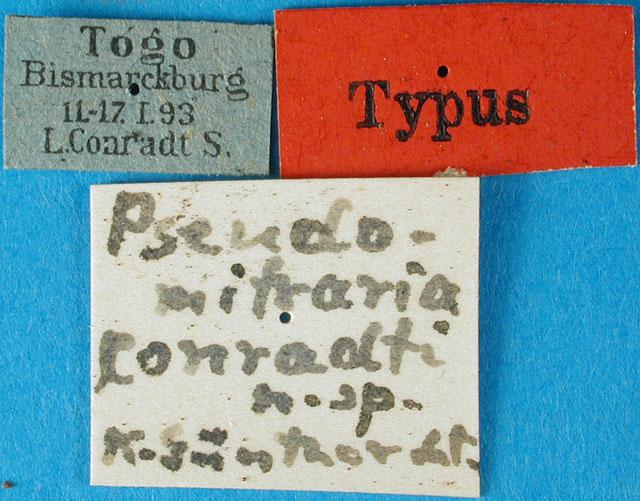 Togo
Bismarckburg
11-17. I. 93
L. Conradt S.
Typus
Pseudo-
mitraria
Conradti
n. sp.
K. Günther det.